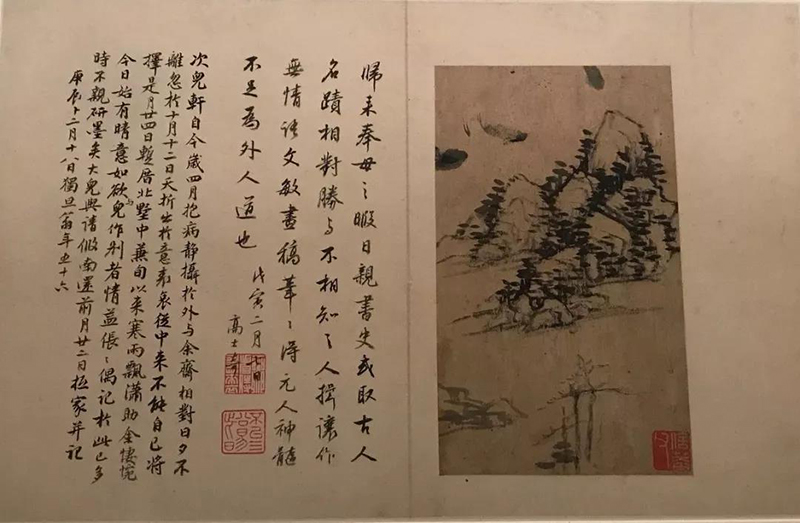 歸來奉母之暇日親書史或取古人
名蹟相對勝与不相知之人揖讓作
無情語文敏畫稿葦葦得元人神髓
不足為外人道也
戊寅二月廿日
高士奇
次兒軒自今歲四月抱病靜攝於外与余齋相對日夕不
離忽於十月十二日夭折出於意表哀從中來不能自已將
擇是月廿四日蹔厝北墅中兼旬以來寒雨飄瀟助余悽惋
今日始有晴意如欲兒作別者情益倀倀偶記於此已多
時不親研墨矣大兒與請假南還前月廿二日抵家并記
庚辰十二月十八日獨旦翁年五十六